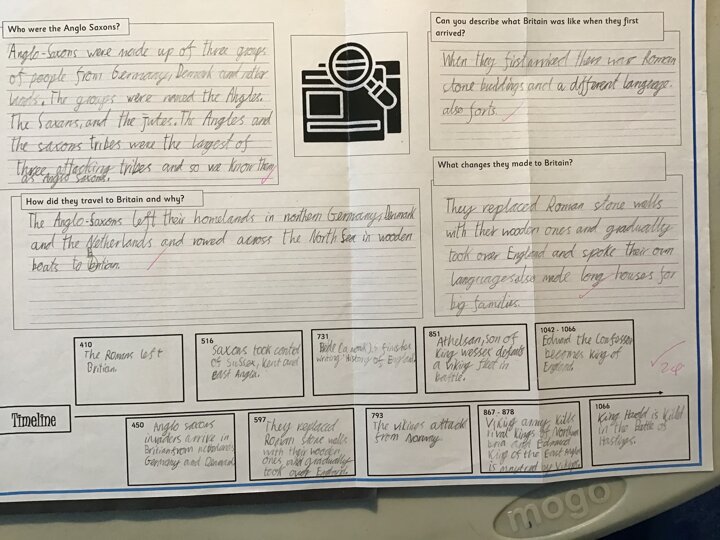 Who were the Anglo Saxons?
Anglo-Saxons were made up of three groups
of people from Germany, Denmark and
The groups were named the Angles.
The Saxons, and the jutes. The Angles and
the saxons tribes were the largest of
three attacking tribes and so we know them
as Anglo saxons.
Can you describe what Britain was like when they first
arrived?
When they first arrived there was Roman
stone buildings and a different language.
also forts.
What changes they made to Britain?
They replaced Roman stone walls
with their wooden ones and gradually
took over England and spoke their own
language also made long houses for
big families.
How did they travel to Britain and why?
The Anglo-Saxons left their homelands in northern Germany, Denmark
and the Netherlands and rowed across the North Sea in wooden
boats to Britian.
410
The Romans left
Britian
516
Saxons took
of Sussex, Kent and
East Anglia.
731
Bede (a monk) finishes
writing History of England.
851
Athelsan, son of
King wessex defeats
a viking fleet in
battle.
1042 - 1066
Edward the Confessor
becomes King of
England.
Timeline
450
Anglo saxons
invaders arrive in
Britian from
Germany and Denmark
597
They replaced
Roman stone walls
with their wooden
ones and gradually
took over England.
793
The vikings attack
from Norway
867 - 878
Viking army kills
rival kings of
bria and Edmund
King of the East
is
1066
King Harold is killed
in the Battle of
Hastings.
mogo